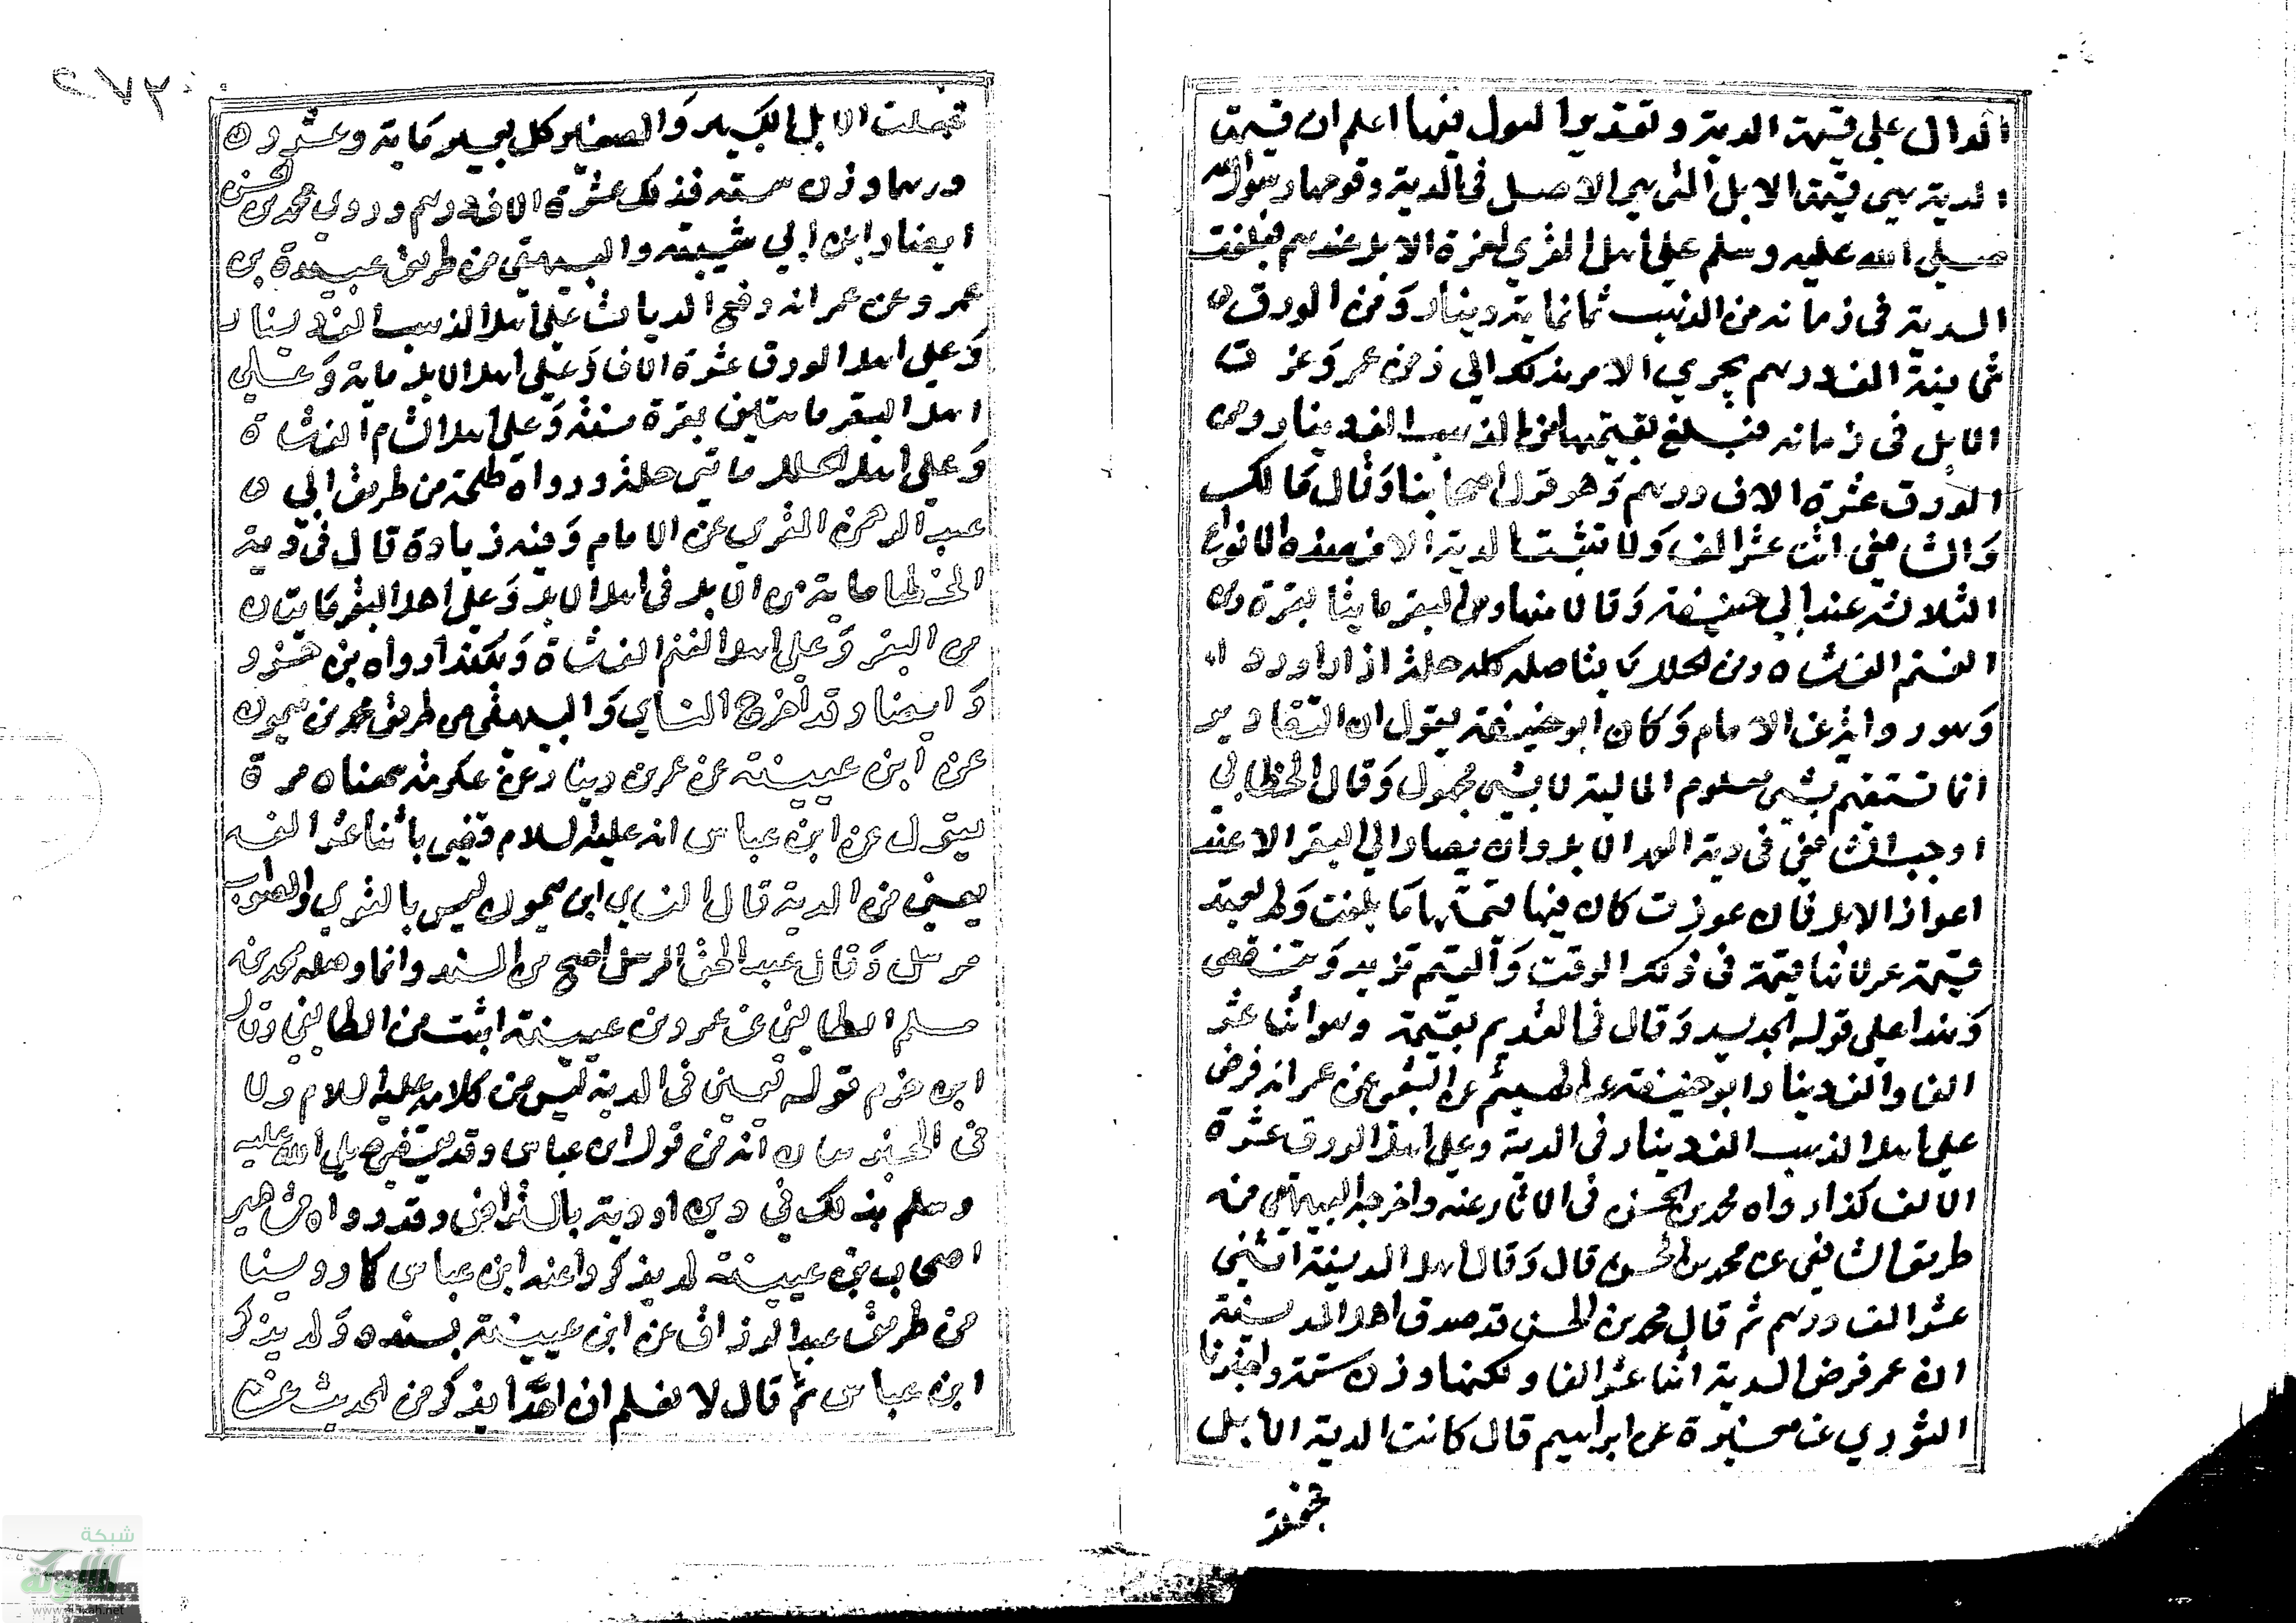 الدال على قيمة الدية وتقدير البدل فيها اعلم ان قيمة
الدية هي قيمة الابل التي هي الاصل في الدية وقومها رسول الله
صلى الله عليه وسلم على اهل القرى لعزة الابل عندهم فبلغت
الدية في زمانه من الذهب ثمانماية دينار وَمن الورق
ثمانية الف درهم فجري الامر بذلك الي زمن عمر وَعزت
الابل في زمانه فبلغ بقيمتها من الذهب الف دينار ومن
الورق عشرة الاف درهم وَهو قول اصحابنا وَقال مَالك
وَالشافعي اثنا عشر الف وَلا تثبت الدية الا من هذه الانواع
الثلاثة عند ابي حنيفة وَقالا منها ومن البقر مايتا بقرة ومن
الغنم الف شاه ومن الحلل مايتا حلة كل حلة ازار اورداء
وَهو رواية عن الامام وَكان ابو حنيفة يقول ان التقادير
انما تستقيم بشي معلوم المالية لا بشي مجهول وَقال الخطابي
اوجب الشافعي في دية العمد الابل وان يصار الي البقر الا عند
اعواز الابل فان عوزت كان فيها قيمتها مَا بلغت وَلم يعتبر
قيمة عمر لانها قيمة في ذلك الوقت وَالقيم تزيد وَتنقص
وَهذا على قوله الجديد وَقال في القديم بقيمة وهو اثنا عشر
الف والف دينار ابو حنيفة عن الهيثم عن الشعبي عن عمر انه فرض
علي اهل الذهب الف دينار في الدية وعلي اهل الورق عشرة
الالف كذا رواه محمد بن الحسن في الاثار عنه واخرجه البيهقي من
طريق الشافعي عن محمد بن الحسن قال وَقال اهل المدينة اثني
عشر الف درهم ثم قال محمد بن الحسن قد صدق اهل المدينة
ان عمر فرض الدية اثنا عشر الفا ولكنها وزن ستة واخبرنا
الثوري عن مغيرة عن ابراهيم قال كانت الدية الابل
فجعلت
٢٧٢
فجعلت الابل الكبير وَالصغير كل بعير مَاية وعشرون
درهما وزن ستة فذلك عشرة الاف درهم وروي محمد بن الحسن
ايضا وابن ابي شيبة والبيهقي من طريق عبيدة بن
عمرو عن عمر انه وضع الديات علي اهل الذهب الف دينار
وَعلي اهل الورق عشرة الاف وَعلي اهل الابل ماية وَعلي
اهل البقر مايتين بقرة مسنة وَعلي اهل الشاء الف شاة
وَعلي اهل الحلل مايتي حلة ورواه طلحة من طريق ابي
عبد الرحمن المقري عن الامام وَفيه زيادة قال في دية
الخطا ماية من الابل في اهل الابل وَعلي اهل البقر مَايتان
من البقر وَعلي اهل الغنم الف شاة وَهكذا رواه بن خسرو
وَايضا وقد اخرج النسايي وَالبيهقي من طريق محمد بن ميمون
عن ابن عيينة عن عمر بن دينار عن عكرمة سمعناه مرة
يقول عن ابن عباس انه عليه السلام قضي باثنا عشر الف
يعني من الدية قال النسايي ابن ميمون ليس بالقوي والصواب
مرسل وَقال عبد الحق المرسل اصح من المسند وانما وصله محمد بن
مسلم الطايفي عن عمرو بن عيينة اثبت من الطايفي وقال
ابن حزم قوله يعني في الدية ليس من كلامه عليه السلام ولا
في الخبر بيان انه من قول ابن عباس وقد يقضي صلي الله عليه
وسلم بذلك في دين او دية بالتراضي وقد رواه مشاهير
اصحاب بن عيينة لم يذكروا عنه ابن عباس كما روينا
من طريق عبد الرزاق عن ابن عيينة بسنده وَلم يذكر
ابن عباس ثم قال لا نعلم ان احدا يذكر من الحديث عن
شبكة
الألوكة
www.alukah.net